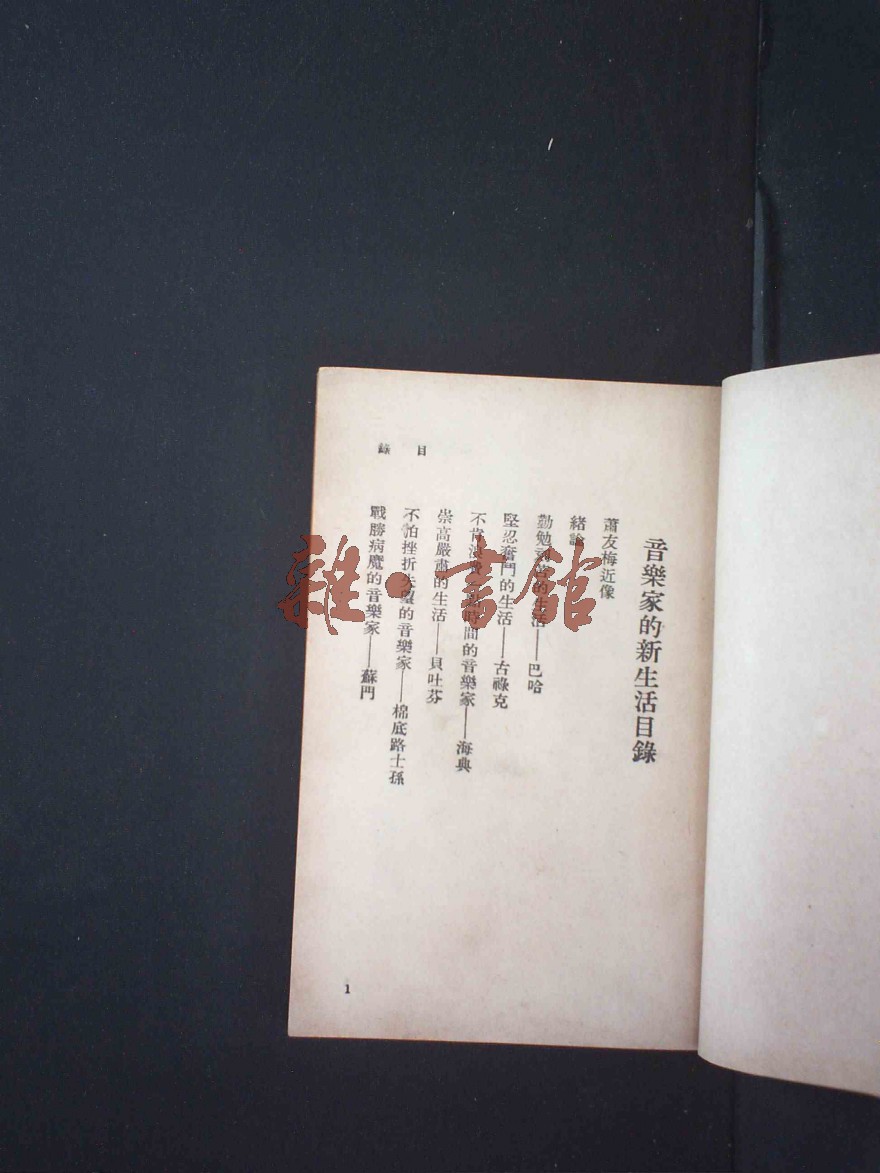 音樂家的新生活目錄
蕭友梅近像
緒論
勤勉刻苦的生活——巴哈
堅忍奮鬥的生活——古祿克
不肯浪費時間的音樂家——海典
崇高嚴肅的生活——貝吐芬
不怕挫折失望的音樂家——棉底路士孫
戰勝病魔的音樂家——蘇門
目錄
1
雜·書館